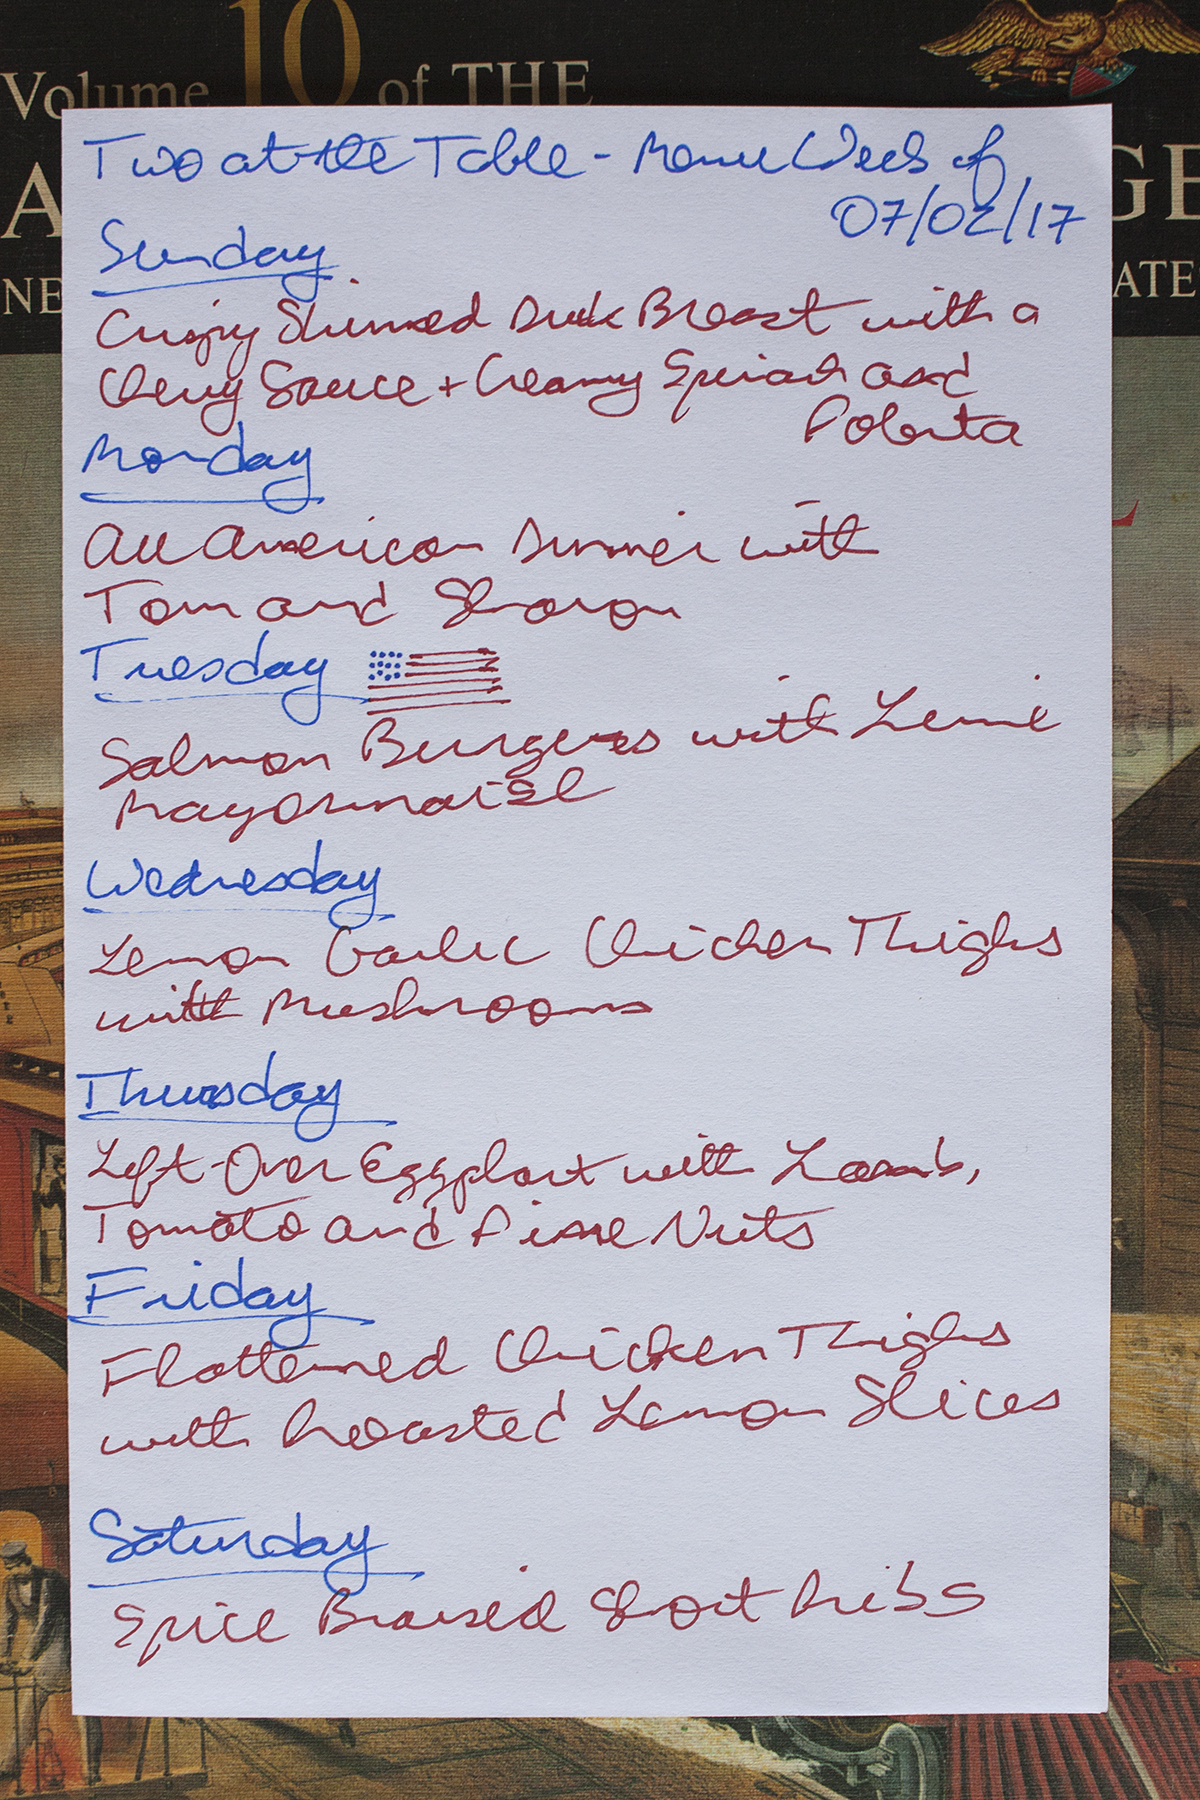 Volume 10 of THE
A GE
NE ATE
Two at the Table - Menu Week of
07/02/17
Sunday
Crispy Skinned Duck Breast with a
Cherry Sauce + Creamy Spinach and
Polenta
Monday
All American Dinner with
Tom and Sharon
Tuesday
Salmon Burgers with Lime
Mayonnaise
Wednesday
Lemon Garlic Chicken Thighs
with Mushrooms
Thursday
Left-Over Eggplant with Lamb,
Tomato and Pine Nuts
Friday
Flattened Chicken Thighs
with Roasted Lemon Slices
Saturday
Spice Braised Short Ribs